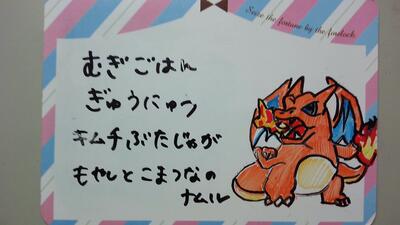 Seize the fortune by the forelock
むぎごはん
ぎゅうにゅう
キムチぶたじゃが
もやしとこまつなの
ナムル